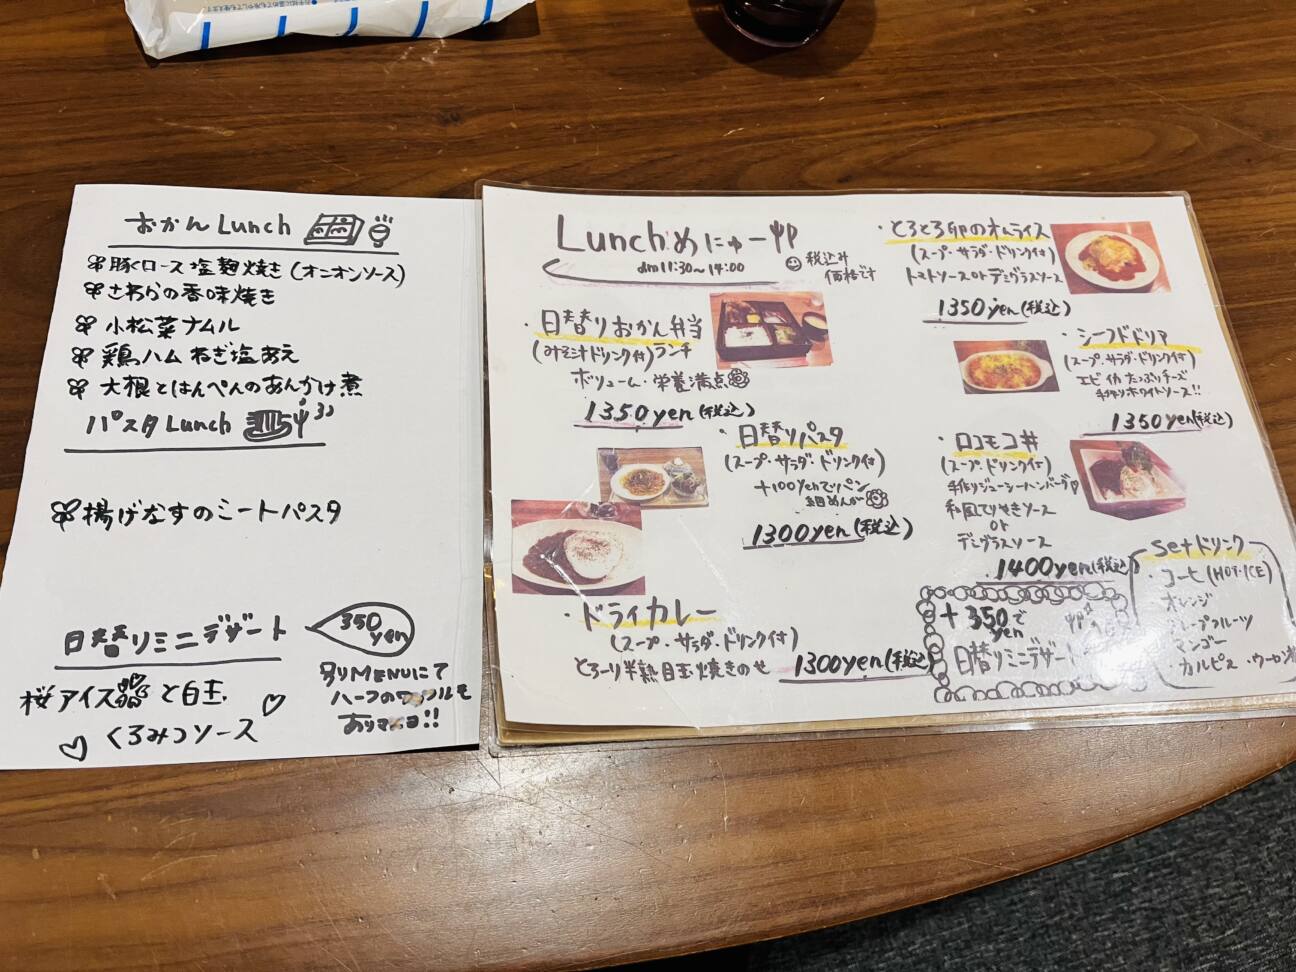 おかんLunch
豚ロース塩麹焼き(オニオンソース)
さわらの香味焼き
小松菜ナムル
鶏ハムねぎ塩あえ
大根とはんぺんのあんかけ煮
パスタLunch
揚げなすのミートパスタ
日替りミニデザート
350yen
桜アイスと白玉
くるみつソース
別りMENUにて
ハーフのワッフルも
あります!!
Lunchめにゅー
am11:30~14:00
税込み
価格です
・日替りおかん弁当
(みそ汁ドリンク付)ランチ
ボリューム・栄養満点
1350yen(税込)
・日替りパスタ
(スープ・サラダ・ドリンク付)
+100yenでパン
1300yen(税込)
・ドライカレー
(スープ・サラダ・ドリンク付)
とろーり半熟目玉焼きのせ
1300yen(税込)
・とろとろ卵のオムライス
(スープ・サラダ・ドリンク付)
トマトソースorデミグラスソース
1350yen(税込)
・シーフドドリア
(スープ・サラダ・ドリンク付)
エビイカたっぷりチーズ
手作りホワイトソース!!
1350yen(税込)
・ロコモコ丼
(スープ・ドリンク付)
手作りジューシーハンバーグ
和風てりやきソース
or
デミグラスソース
1400yen(税込)
+350yenで
日替りミニデザート
Setドリンク
・コーヒ(HOT・ICE)
・オレンジ
・グレープフルーツ
・マンゴー
・カルピス・ウーロン茶